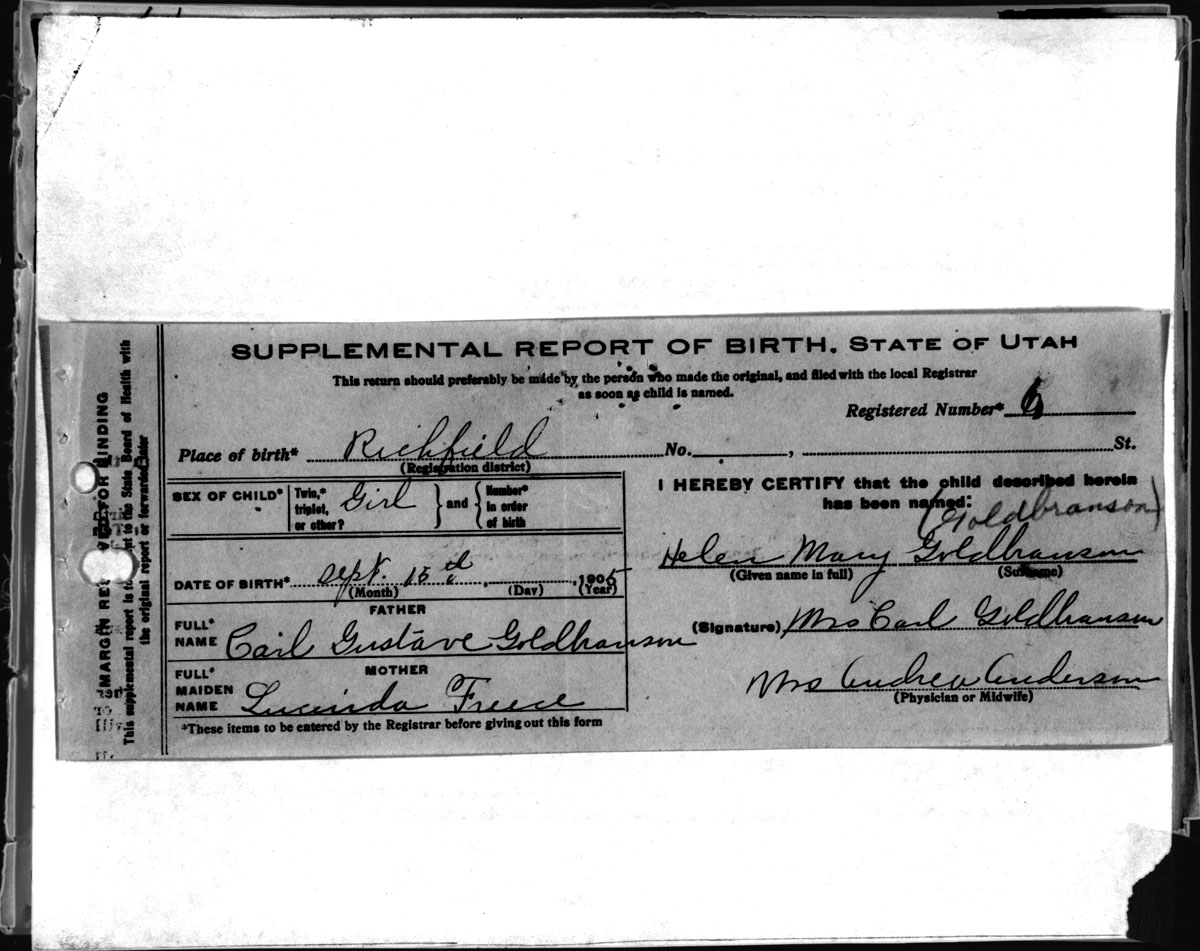 SUPPLEMENTAL REPORT OF BIRTH. STATE OF UTAH
This return should preferably be made by the person who made the original, and filed with the local Registrar
as soon as child is named.
Registered Number* 6
Place of birth* Richfield No. , St.
(Registration district)
SEX OF CHILD* Twin,* triplet, or other? Girl } and { Number* in order of birth
DATE OF BIRTH* Sept. 15th , , 1905
(Month) (Day) (Year)
FATHER
FULL* NAME Carl Gustave Goldbranson
MOTHER
FULL* MAIDEN NAME Lucinda Freece
*These items to be entered by the Registrar before giving out this form
I HEREBY CERTIFY that the child described herein
has been named:
(Goldbranson)
Helen Mary Goldbranson
(Given name in full) (Surname)
(Signature) Mrs Carl Goldbranson
Mrs Andrea Anderson
(Physician or Midwife)
MARGIN RES VED FOR BINDING
This supplemental report is to nt to the State Board of Health with
the original report or forwarded later